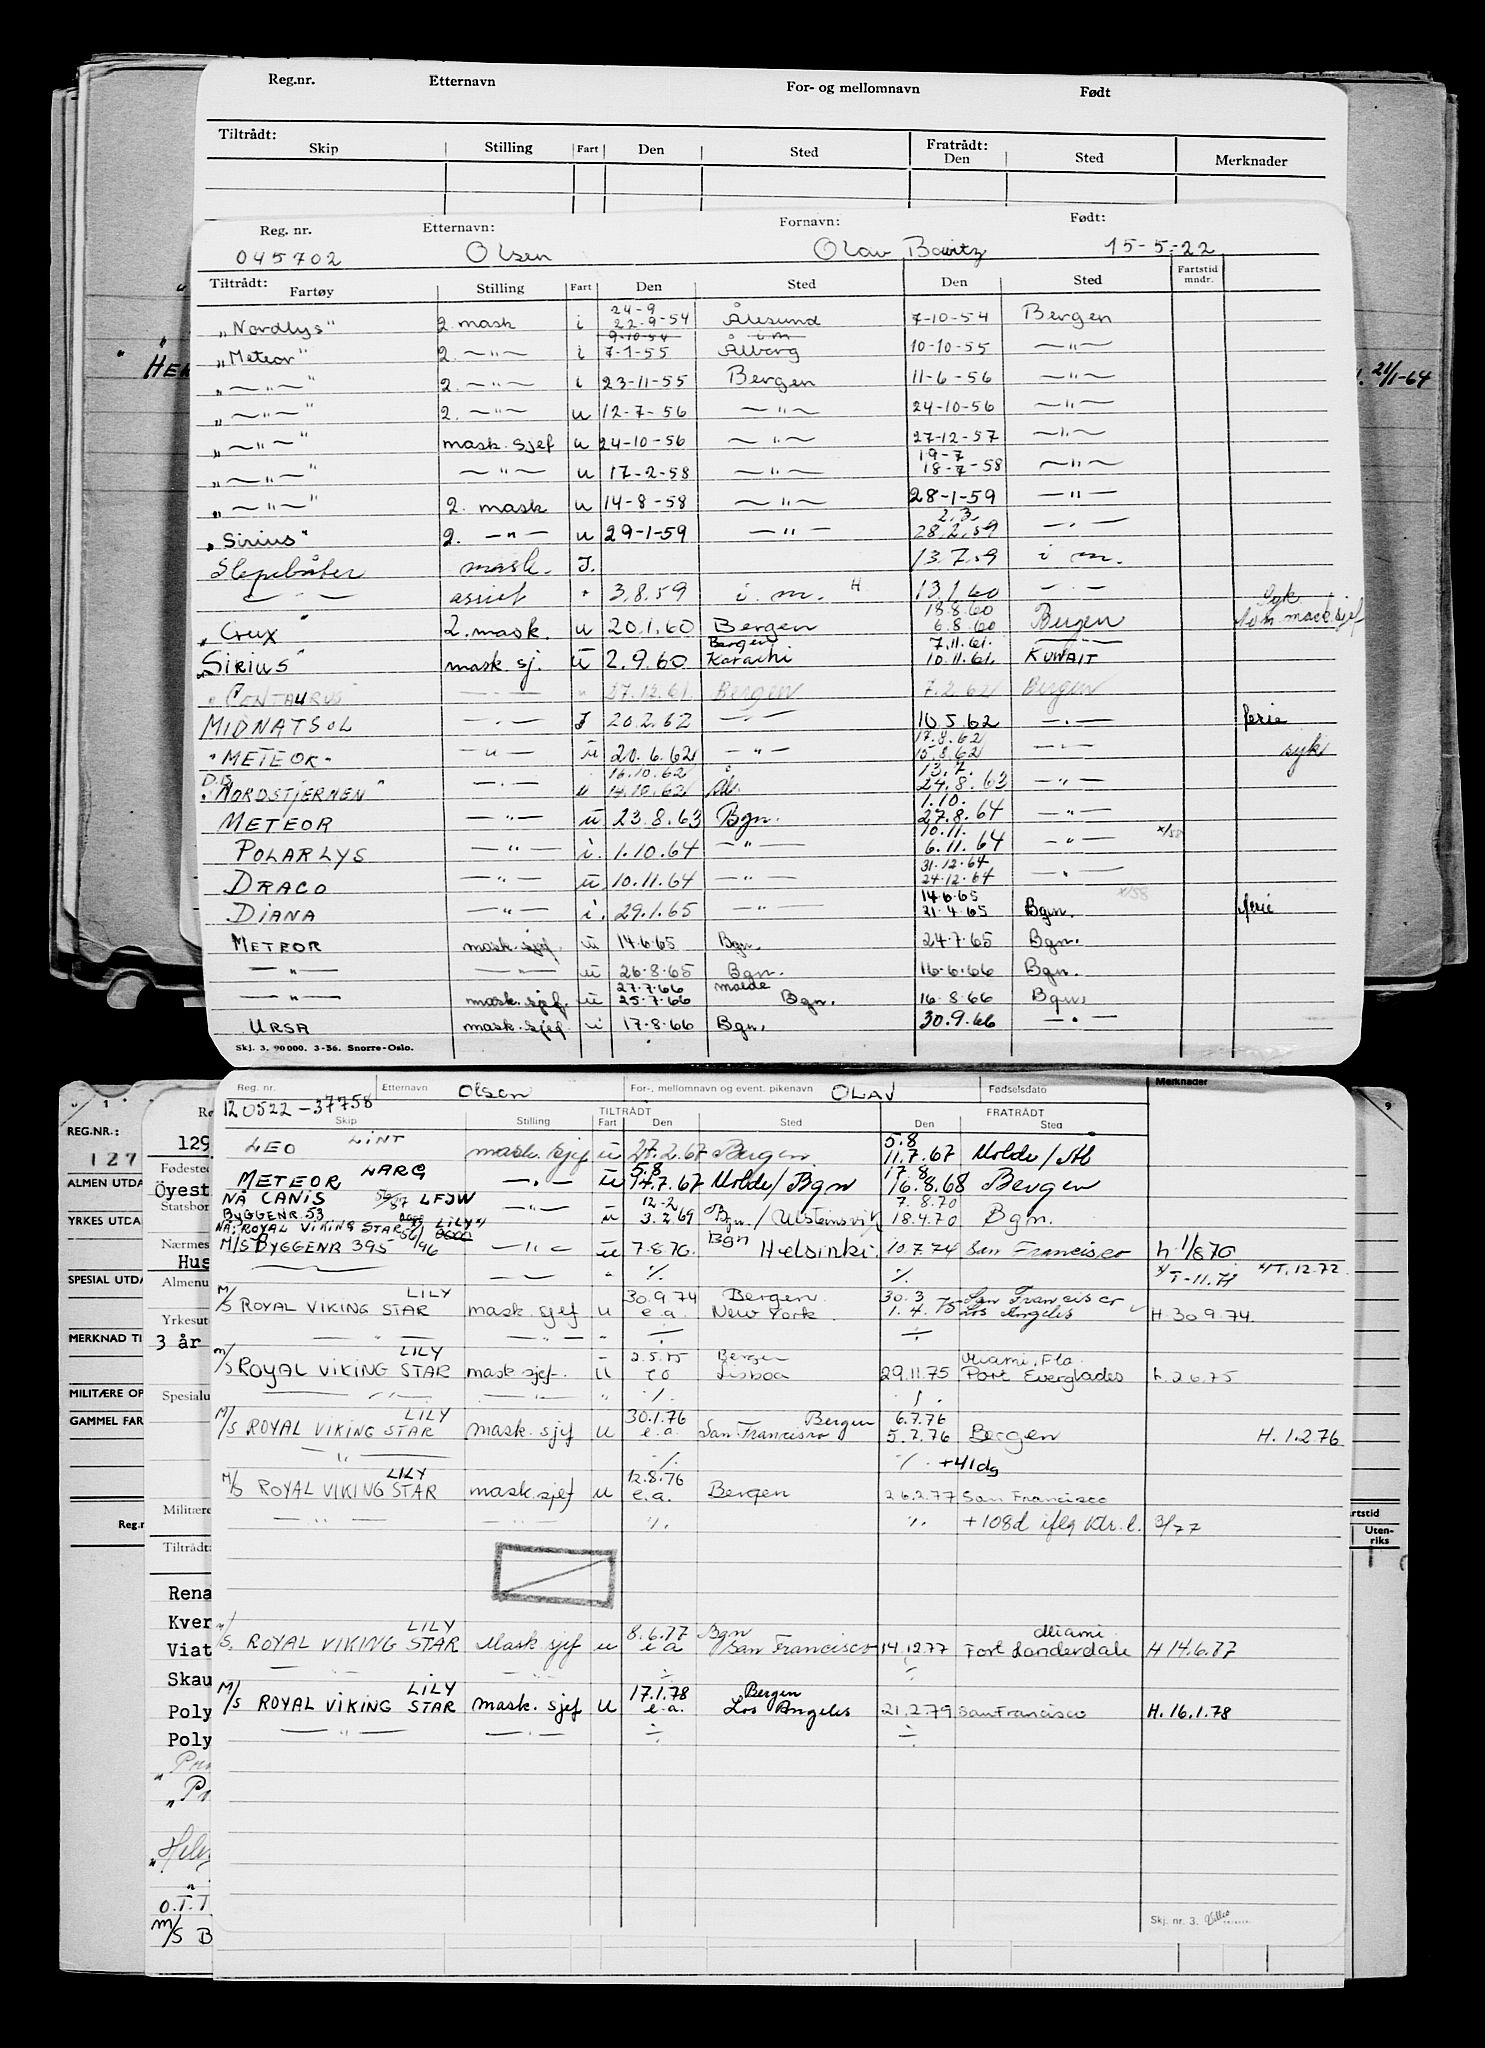 Reg.nr. Etternavn For- og mellomnavn Født
Tiltrådt: Fratrådt:
Skip Stilling Fart Den Sted Den Sted Merknader
Reg. nr. Etternavn: Fornavn: Født:
045702 Olsen Olav 15-5-22
Tiltrådt:
Fartøy Stilling Fart Den Sted Den Sted Fartstid mndr.
24-9
"Nordlys" 2. mask i 22-9-54 Ålesund 7-10-54 Bergen
9-10-54 i m
"Meteor" 2. —"— i 7-1-55 Ålborg 10-10-55 —"—
"—"—" 2. —"— i 23-11-55 Bergen 11-6-56 —"—
"—"—" 2. —"— u 12-7-56 —"— 24-10-56 —"—
"—"—" mask. sjef u 24-10-56 —"— 27-12-57 —"—
19-7
"—"—" —"— u 17-2-58 —"— 18-7-58 —"—
"—"—" 2. mask u 14-8-58 —"— 28-1-59 —"—
2.3.
"Sirius" 2. —"— u 29-1-59 —"— 28.2.59 —"—
Slepebåter mask. J. 13.7.59 i m.
—"— assist " 3.8.59 i. m. H 13.1.60 —"—
18.8.60 syk
"Crux" 2. mask. u 20.1.60 Bergen 6.8.60 Bergen som mask.sjef
Bergen 7.11.61.
"Sirius" mask sj. u 2.9.60 Karachi 10.11.61. KUWAIT
"CENTAURUS" —"— " 27.12.61. Bergen 7.2.62 Bergen
MIDNATSOL —"— J 20.2.62 —"— 10.5.62 —"— ferie
17.8.62
"METEOR" —"— u 20.6.62 —"— 15.8.62 —"— syk
D/S 16.10.62 13.7.
"NORDSTJERNEN" —"— u 14.10.62 Ål. 24.8.63 —"—
1.10.
METEOR —"— u 23.8.63 Bgn. 27.8.64 —"—
10.11.
POLARLYS —"— i. 1.10.64 —"— 6.11.64 —"— x/58
31.12.64
DRACO —"— u 10.11.64 —"— 24.12.64 —"—
14.6.65 x/58
DIANA —"— i. 29.1.65 —"— 21.4.65 Bgn. ferie
METEOR mask. sjef. u 14.6.65 Bgn. 24.7.65 Bgn.
—"— —"— u 26.8.65 Bgn. 16.6.66 Bgn.
27.7.66 Molde
—"— mask. sjef. u 25.7.66 Bgn. 16.8.66 Bgn.
URSA mask. sjef. u 17.8.66 Bgn. 30.9.66 —"—
Skj. 3. 90 000. 3-56. Snorre-Oslo.
"HE
21/1-64
Reg. nr. Etternavn For-, mellomnavn og event. pikenavn Fødselsdato Merknader
120522-37758 Olsen OLAV
TILTRÅDT FRATRÅDT
Skip Stilling Fart Den Sted Den Sted
LINT 5.8
LEO mask. sjef u 27.2.67 Bergen 11.7.67 Molde/Ål
LARG 5.8 17.8
METEOR —"— u 14.7.67 Molde/Bgn 16.8.68 Bergen
NÅ CANIS 56/87 LFJW 12-2 7.8.70
BYGGENR. 53 —"— u 3.2.69 Bgn./Ulsteinsvik 18.4.70 Bgn.
NÅ: ROYAL VIKING STAR LILY
M/S BYGGENR 395 56/96 —"— u 7.8.70 Bgn Helsinki 10.7.74 San Francisco h 1/8 70
—"— —"— " ./. ./. x/T-11.71 x/T.12.72
LILY 30.9.74 Bergen 30.3 San Francisco
M/S ROYAL VIKING STAR mask. sjef u e.a. New York 1.4.75 Los Angeles H. 30 9.74
—"— —"— " ./. ./.
LILY 2.5.75 Bergen Miami, Fla.
M/S ROYAL VIKING STAR mask sjef. u eo Lisboa 29.11.75 Port Everglades h. 2.6.75
—"— —"— " ./. ./.
LILY 30.1.76 Bergen 6.7.76
M/S ROYAL VIKING STAR mask. sjef u e.a. San Francisco 5.7.76 Bergen H. 1.2.76
—"— ./. ./. +41dg
LILY 12.8.76
M/S ROYAL VIKING STAR mask.sjef u e.a. Bergen 26.2.77 San Francisco
—"— —"— ./. ./. +108d iflg ktr.l. 3/77
LILY 8.6.77 Bgn Miami
M/S. ROYAL VIKING STAR Mask sjef u e a San Francisco 14.12.77 Fort Lauderdale H 14.6.77
— — ./. ./.
LILY 17.1.78 Bergen
M/S ROYAL VIKING STAR mask. sjef u e.a. Los Angeles 21.2.79 San Francisco H. 16.1.78
—"— —"— ./. ./.
Skj. nr. 3.
REG.NR.:
127
ALMEN UTDA
YRKES UTDA
SPESIAL UTDA
MERKNAD TI
MILITÆRE OP
GAMMEL FAR
Reg.n
129
Fødested
Öyest
Statsbor
Nærmes
Hus
Almenu
Yrkesut
3 år
Spesialu
Militære
Tiltrådt:
Rena
Kver
Viat
Skau
Poly
Poly
"Helg
O.T.T
M/S B
9
rtstid
Uten-
riks